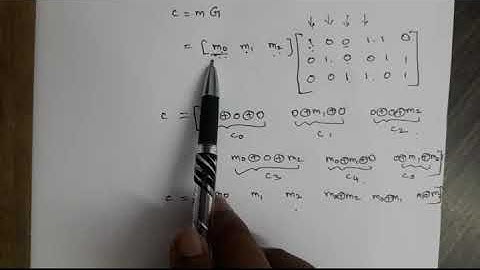 c = m G
= [ m0 m1 m2 ] [ 1 0 0 1 1 0
0 1 0 0 1 1
0 0 1 1 0 1 ]
c = [ ⊕0⊕0 0⊕m1⊕0 0⊕0⊕m2
c0 c1 c2
m0⊕0⊕m2 m0⊕m1⊕0 0⊕m1⊕
c3 c4
c = m0 m1 m2 m0⊕m2 m0⊕m1